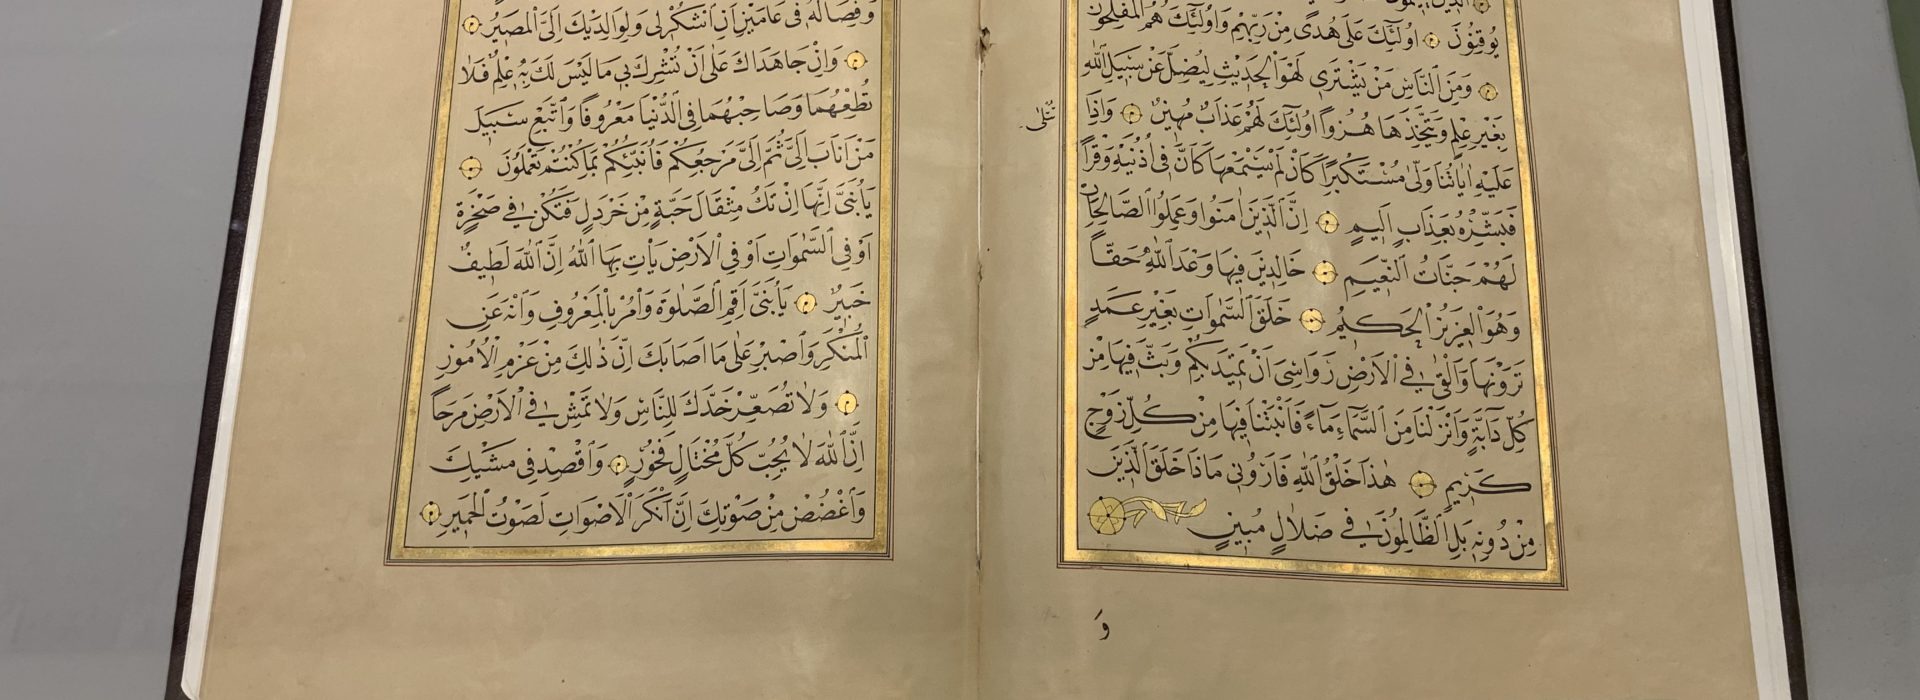 يُوقِنُونَ اُولٰٓئِكَ عَلٰى هُدًى مِنْ رَبِّهِمْ وَاُولٰٓئِكَ هُمُ الْمُفْلِحُونَ
وَمِنَ النَّاسِ مَنْ يَشْتَرِى لَهْوَ الْحَدِيثِ لِيُضِلَّ عَنْ سَبِيلِ اللّٰهِ
بِغَيْرِ عِلْمٍ وَيَتَّخِذَهَا هُزُوًا اُولٰٓئِكَ لَهُمْ عَذَابٌ مُهِينٌ وَاِذَا
تُتْلٰى
عَلَيْهِ اٰيَاتُنَا وَلّٰى مُسْتَكْبِرًا كَاَنْ لَمْ يَسْمَعْهَا كَاَنَّ فِى اُذُنَيْهِ وَقْرًا
فَبَشِّرْهُ بِعَذَابٍ اَلِيمٍ اِنَّ الَّذِينَ اٰمَنُوا وَعَمِلُوا الصَّالِحَاتِ
لَهُمْ جَنَّاتُ النَّعِيمِ خَالِدِينَ فِيهَا وَعْدَ اللّٰهِ حَقًّا
وَهُوَ الْعَزِيزُ الْحَكِيمُ خَلَقَ السَّمٰوَاتِ بِغَيْرِ عَمَدٍ
تَرَوْنَهَا وَاَلْقٰى فِى الْاَرْضِ رَوَاسِىَ اَنْ تَمِيدَ بِكُمْ وَبَثَّ فِيهَا مِنْ
كُلِّ دَٓابَّةٍ وَاَنْزَلْنَا مِنَ السَّمَٓاءِ مَٓاءً فَاَنْبَتْنَا فِيهَا مِنْ كُلِّ زَوْجٍ
كَرِيمٍ هٰذَا خَلْقُ اللّٰهِ فَاَرُونِى مَاذَا خَلَقَ الَّذِينَ
مِنْ دُونِهِ بَلِ الظَّالِمُونَ فِى ضَلَالٍ مُبِينٍ
وَ
وَفِصَالُهُ فِى عَامَيْنِ اَنِ اشْكُرْ لِى وَلِوَالِدَيْكَ اِلَىَّ الْمَصِيرُ
وَاِنْ جَاهَدَاكَ عَلٰى اَنْ تُشْرِكَ بِى مَا لَيْسَ لَكَ بِهِ عِلْمٌ فَلَا
تُطِعْهُمَا وَصَاحِبْهُمَا فِى الدُّنْيَا مَعْرُوفًا وَاتَّبِعْ سَبِيلَ
مَنْ اَنَابَ اِلَىَّ ثُمَّ اِلَىَّ مَرْجِعُكُمْ فَاُنَبِّئُكُمْ بِمَا كُنْتُمْ تَعْمَلُونَ
يَابُنَىَّ اِنَّهَا اِنْ تَكُ مِثْقَالَ حَبَّةٍ مِنْ خَرْدَلٍ فَتَكُنْ فِى صَخْرَةٍ
اَوْ فِى السَّمٰوَاتِ اَوْ فِى الْاَرْضِ يَاْتِ بِهَا اللّٰهُ اِنَّ اللّٰهَ لَطِيفٌ
خَبِيرٌ يَابُنَىَّ اَقِمِ الصَّلٰوةَ وَاْمُرْ بِالْمَعْرُوفِ وَانْهَ عَنِ
الْمُنْكَرِ وَاصْبِرْ عَلٰى مَا اَصَابَكَ اِنَّ ذٰلِكَ مِنْ عَزْمِ الْاُمُورِ
وَلَا تُصَعِّرْ خَدَّكَ لِلنَّاسِ وَلَا تَمْشِ فِى الْاَرْضِ مَرَحًا
اِنَّ اللّٰهَ لَا يُحِبُّ كُلَّ مُخْتَالٍ فَخُورٍ وَاقْصِدْ فِى مَشْيِكَ
وَاغْضُضْ مِنْ صَوْتِكَ اِنَّ اَنْكَرَ الْاَصْوَاتِ لَصَوْتُ الْحَمِيرِ